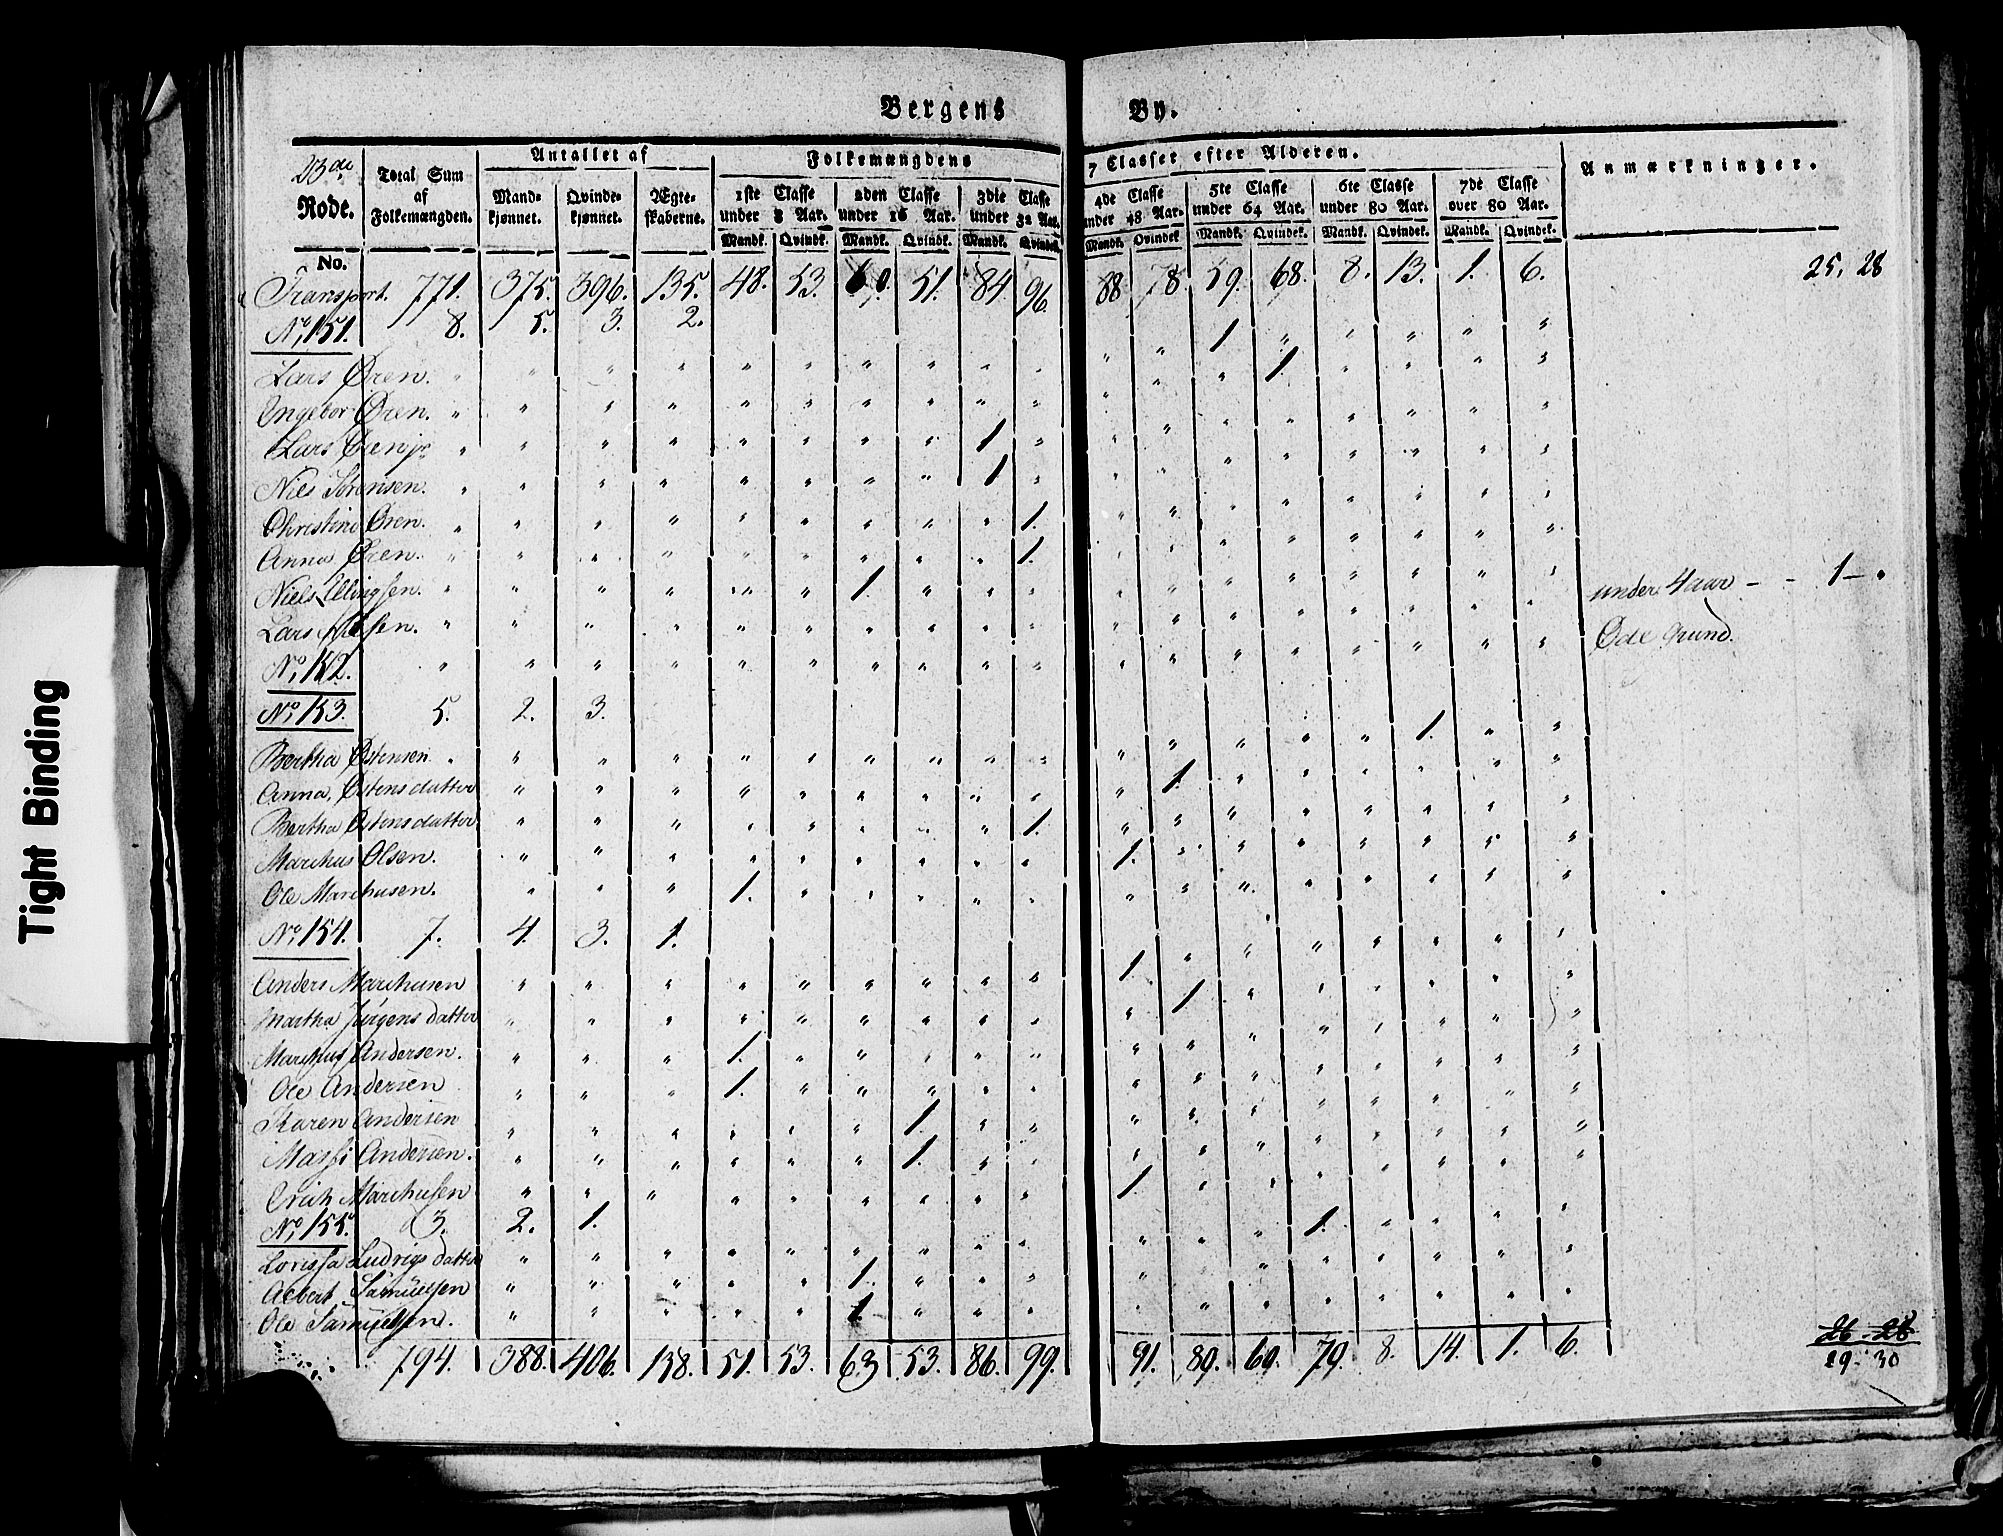 Bergens By.
23de Rode.
Total Sum af Folkemængden.
Antallet af
Mandkjønnet. Qvindekjønnet. Ægteskaberne.
Folkemængdens 7 Classer efter Alderen.
1ste Classe under 8 Aar. 2den Classe under 16 Aar. 3die Classe under 32 Aar. 4de Classe under 48 Aar. 5te Classe under 64 Aar. 6te Classe under 80 Aar. 7de Classe over 80 Aar.
Mandk. Qvindek. Mandk. Qvindek. Mandk. Qvindek. Mandk. Qvindek. Mandk. Qvindek. Mandk. Qvindek. Mandk. Qvindek.
Anmærkninger.
No.
Transport. 771. 375. 396. 135. 48. 53. 60. 51. 84 96. 88 78. 59. 68. 8. 13. 1. 6. 25. 28
No. 151. 8. 5. 3. 2.
Lars Øren. 1.
Ingebor Øren. 1.
Lars Øren jr. 1
Niels Sörensen. 1
Christine Øren. 1.
Anna Øren. 1.
Niels Ellingsen. 1.
Lars Nilsen. under 4 aar - - 1 -
No. 152. Øde Grund.
No. 153. 5. 2. 3.
Bertha Østensen 1.
Anna Østens datter 1.
Bertha Østens datter 1.
Marchus Olsen. 1.
Ole Marchusen. 1.
No. 154. 7. 4. 3. 1.
Anders Marchusen 1
Martha Jürgens datter 1
Marchus Andersen. 1.
Ole Andersen 1.
Karen Andersen 1.
Andersen. 1.
Erich Marchusen 1.
No. 155. 3. 2. 1.
Lovissa Ludvigs datter 1.
Albert Samuelsen 1.
Ole Samuelsen. 1.
794. 388. 406. 138. 51. 53. 63 53. 86. 99. 91. 80. 60. 79. 8. 14. 1. 6. 26 - 28
29 - 30
Tight Binding